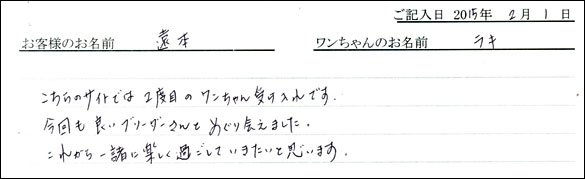 ご記入日 2015年 2月 1日
お客様のお名前 遠本 ワンちゃんのお名前 ラキ
こちらのサイトでは2度目のワンちゃん受け入れです。
今回も良いブリーダーさんとめぐり会えました。
これから一諸に楽しく過ごしていきたいと思います。